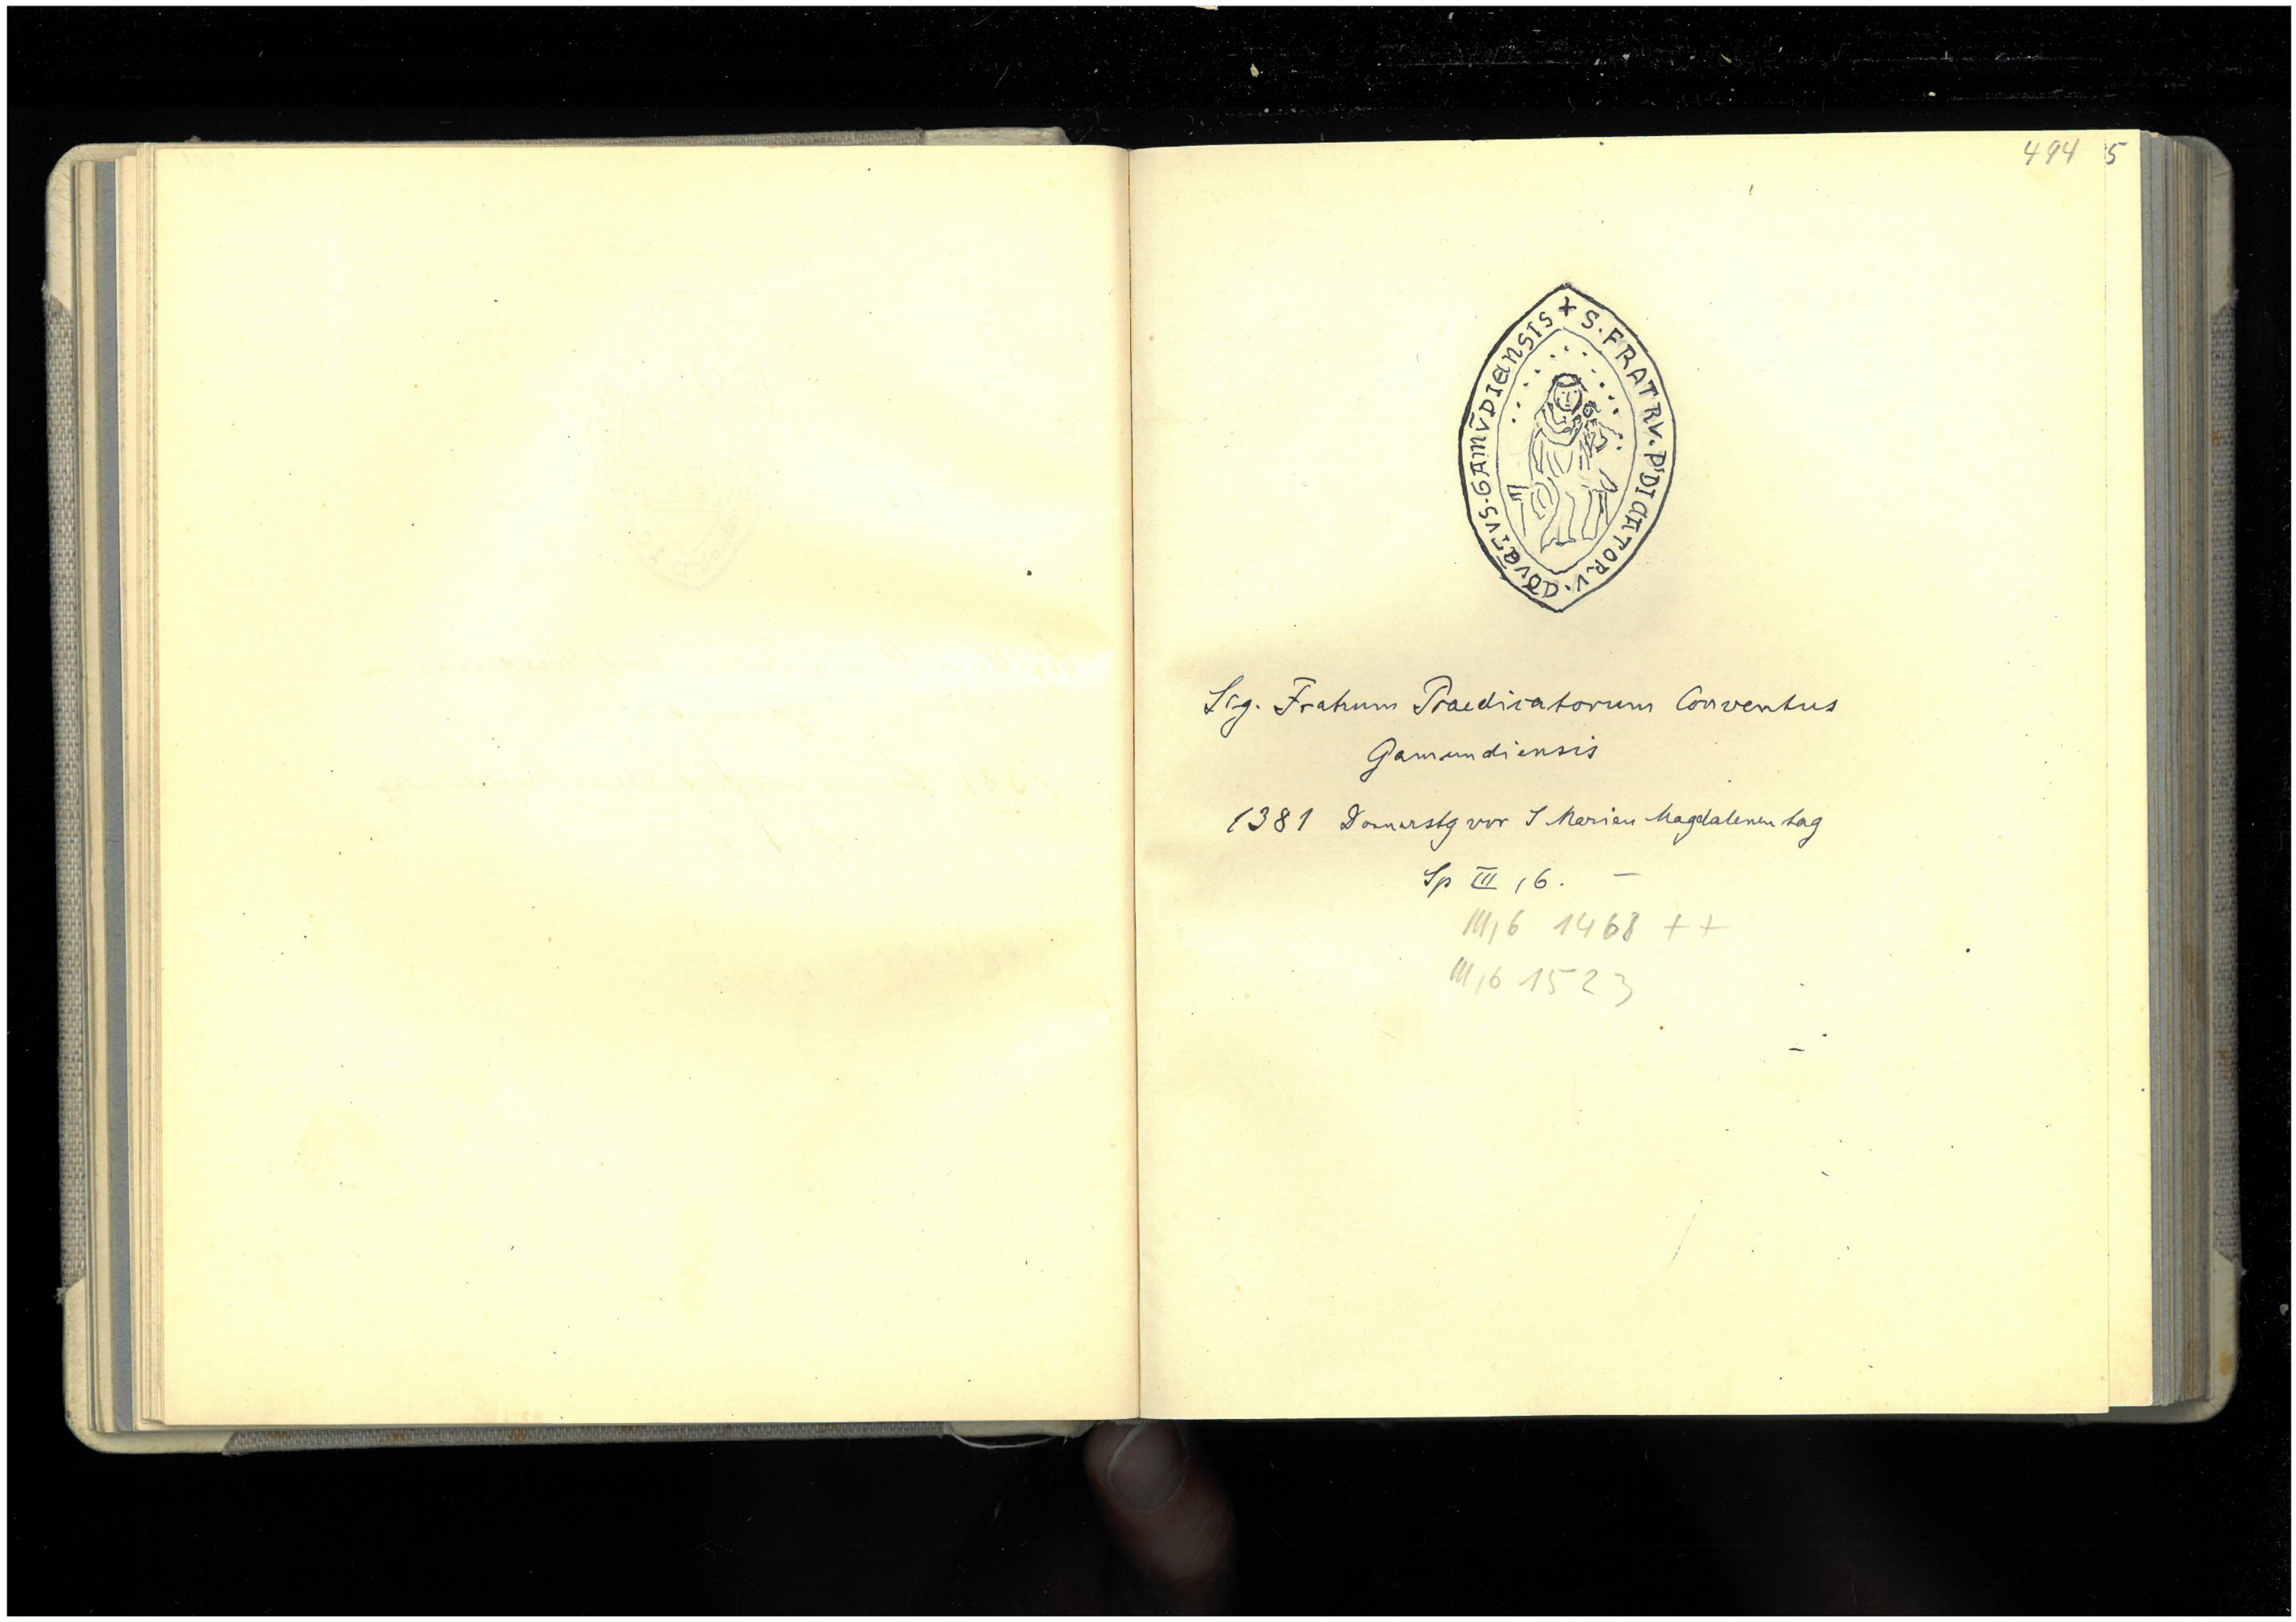 494 5
+ S. FRATRV. P'DICATOR.V. CŌVĒTVS. GAMV̄DIENSIS
Sig. Fratrum Praedicatorum Conventus
Gamundiensis
1381 Donnerstg vor S Marien Magdalenen tag
Sp III, 6. –
III, 6 1468 + +
III, 6 1523